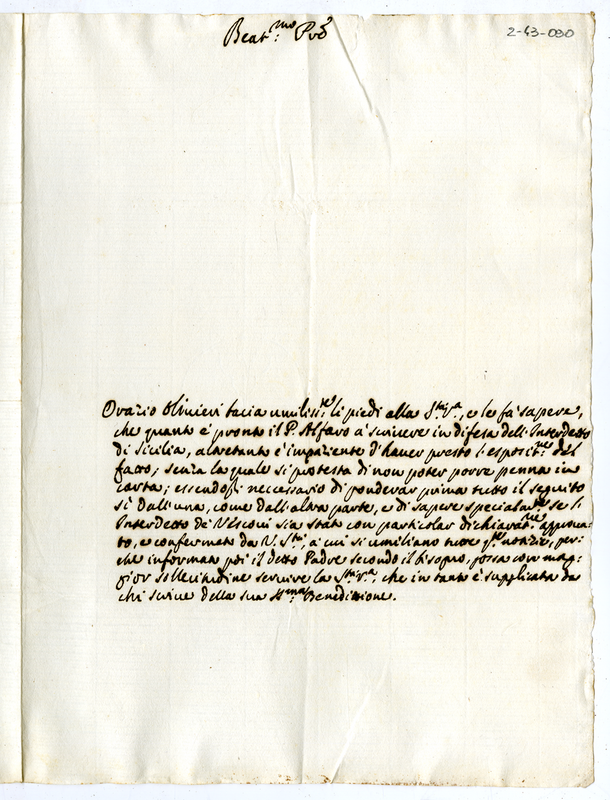 Beat.mo Pre
2-43-030
Orazio Olivieri bacia umiliss.te li piedi alla S.tà V.a, e le fà sapere,
che quanto è pronto il P. Alfaro à scrivere in difesa dell'Interdetto
di Sicilia, altretanto è impaziente d'haver presto l'esposit.ne del
fatto; senza la quale si protesta di non poter porre penna in
carta; essendogli neccessario di ponderar prima tutto il seguito
sì dall'una, come dall'altra parte, e di sapere specialm.te se l'
Interdetto de' Vescovi sia stato con particolar dichiarat.ne approva-
to, e confermato da V. S.tà, a cui si umiliano tutte q.te notizie, per-
che informato poi il detto Padre secondo il bisogno, possa con mag-
gior sollecitudine servire la S.tà V.a, che in tanto è supplicata da
chi scrive della sua S.ma Benedittione.